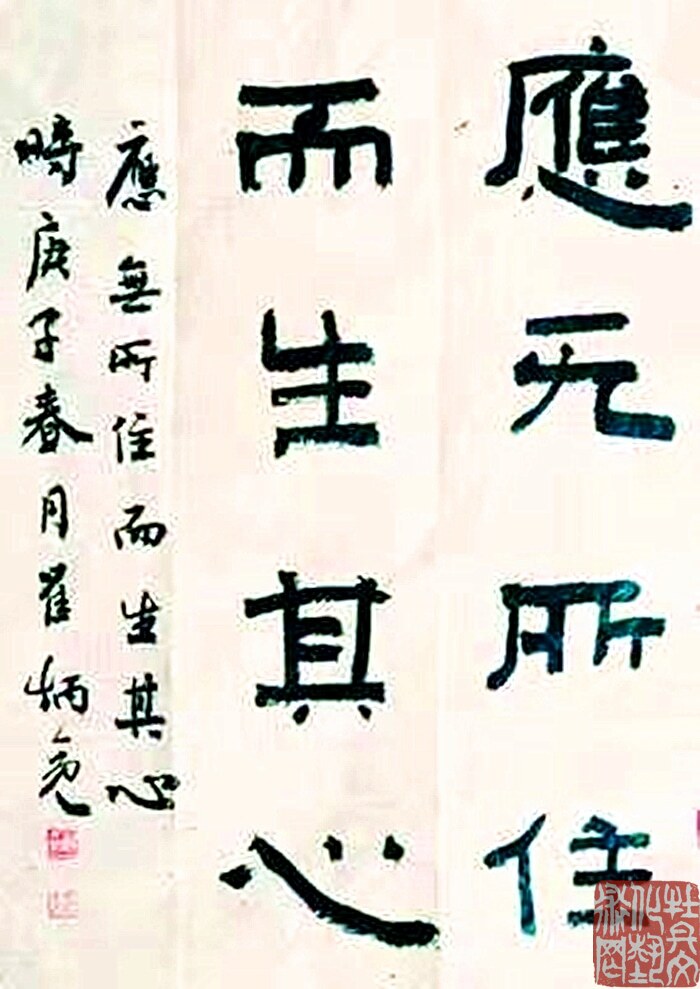 應无所住
而生其心
應無所住而生其心
時庚子春月崔炳亮